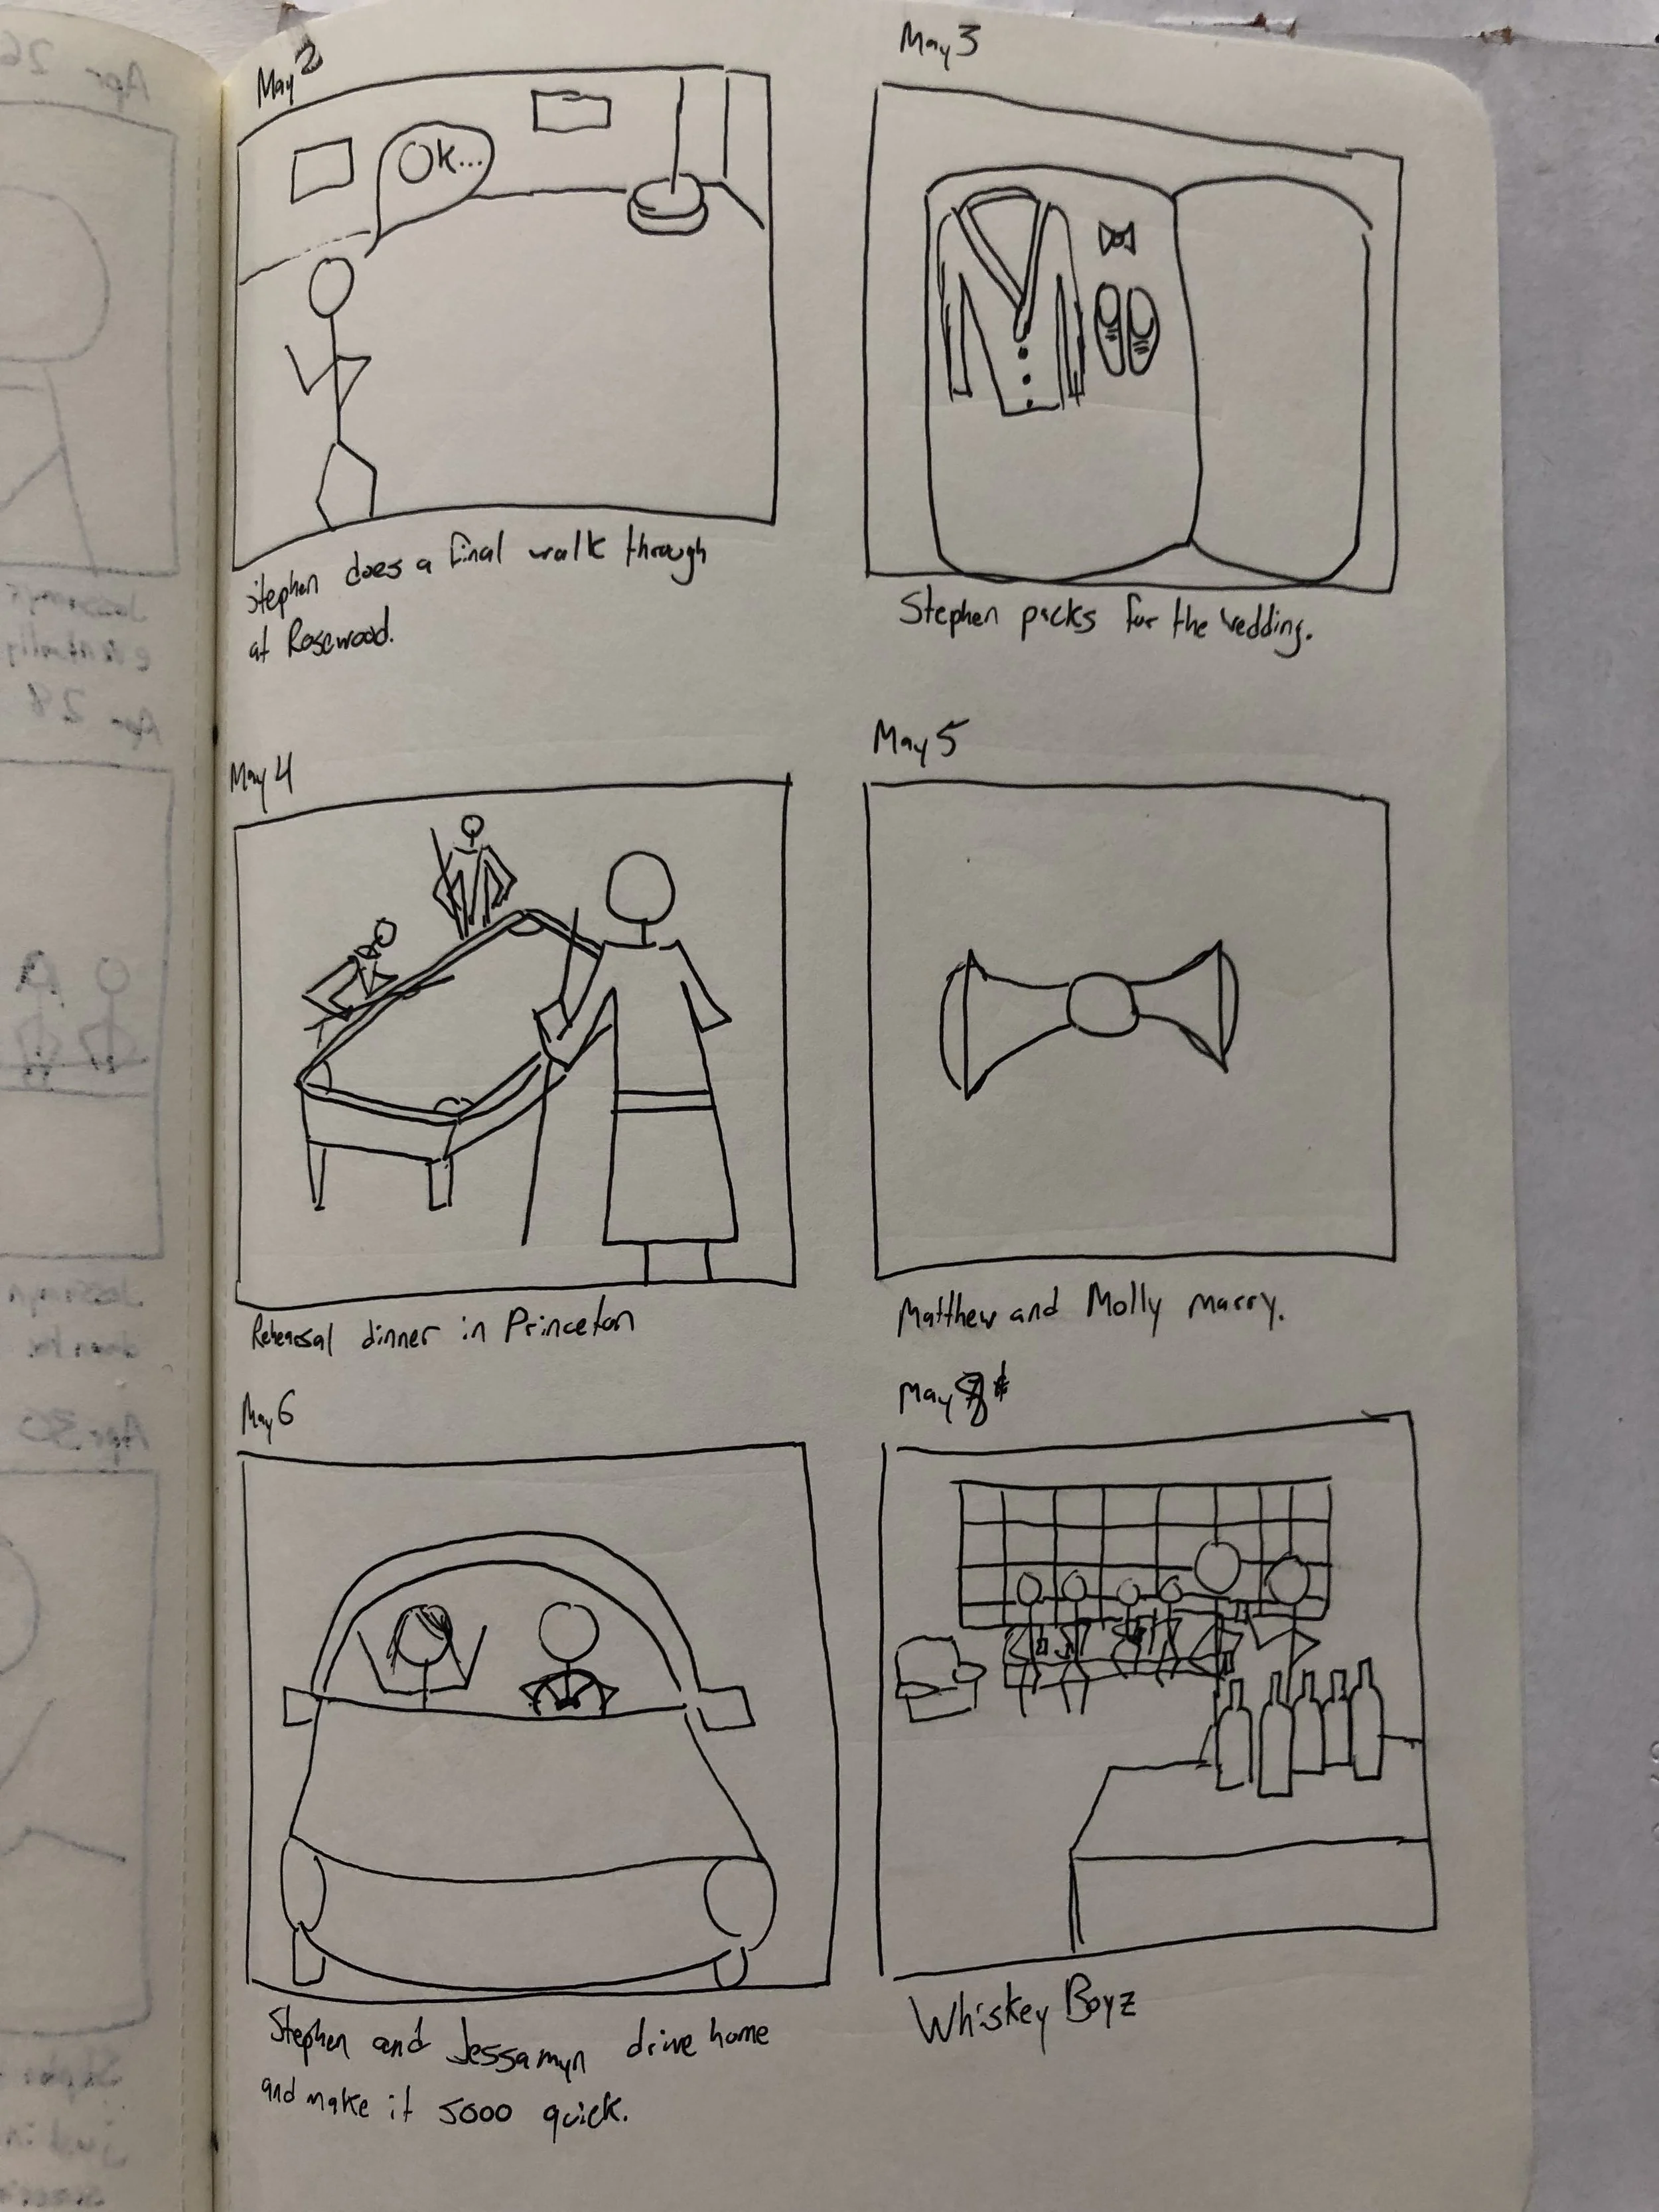 May 2
OK...
Stephen does a final walk through
at Rosewood.
May 3
Stephen packs for the wedding.
May 4
Rehearsal dinner in Princeton
May 5
Matthew and Molly marry.
May 6
Stephen and Jessamyn drive home
and make it sooo quick.
May
Whiskey Boyz
Apr 26
Apr 28
Jessamyn
Apr 30